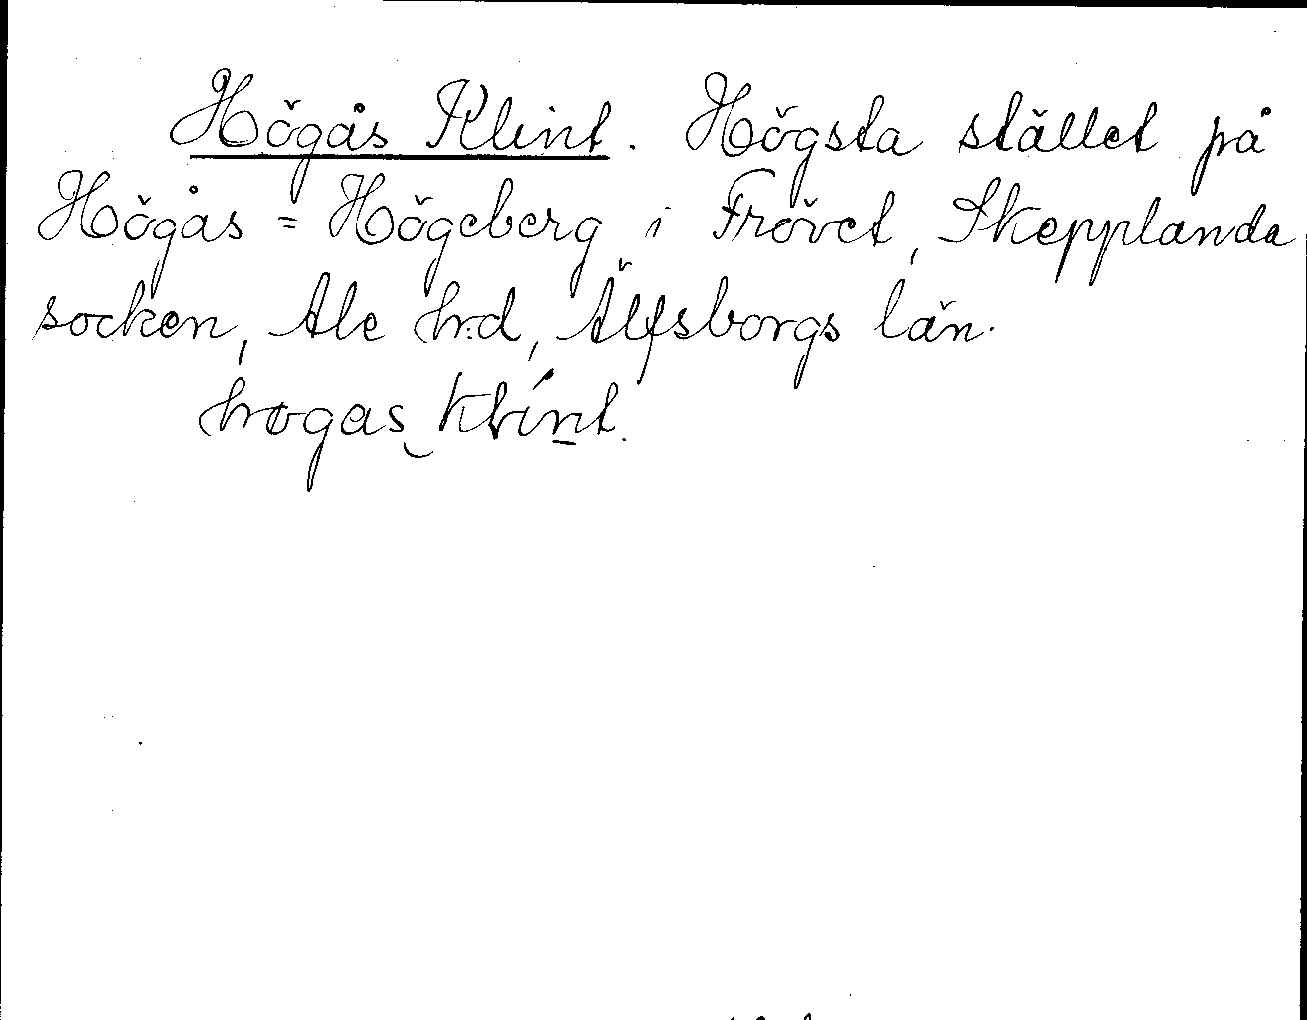 Högås Klint. Högsta stället på
Högås = Högeberg i Frövet, Skepplanda
socken, Ale hrd, Älfsborgs län.
høgas klint.